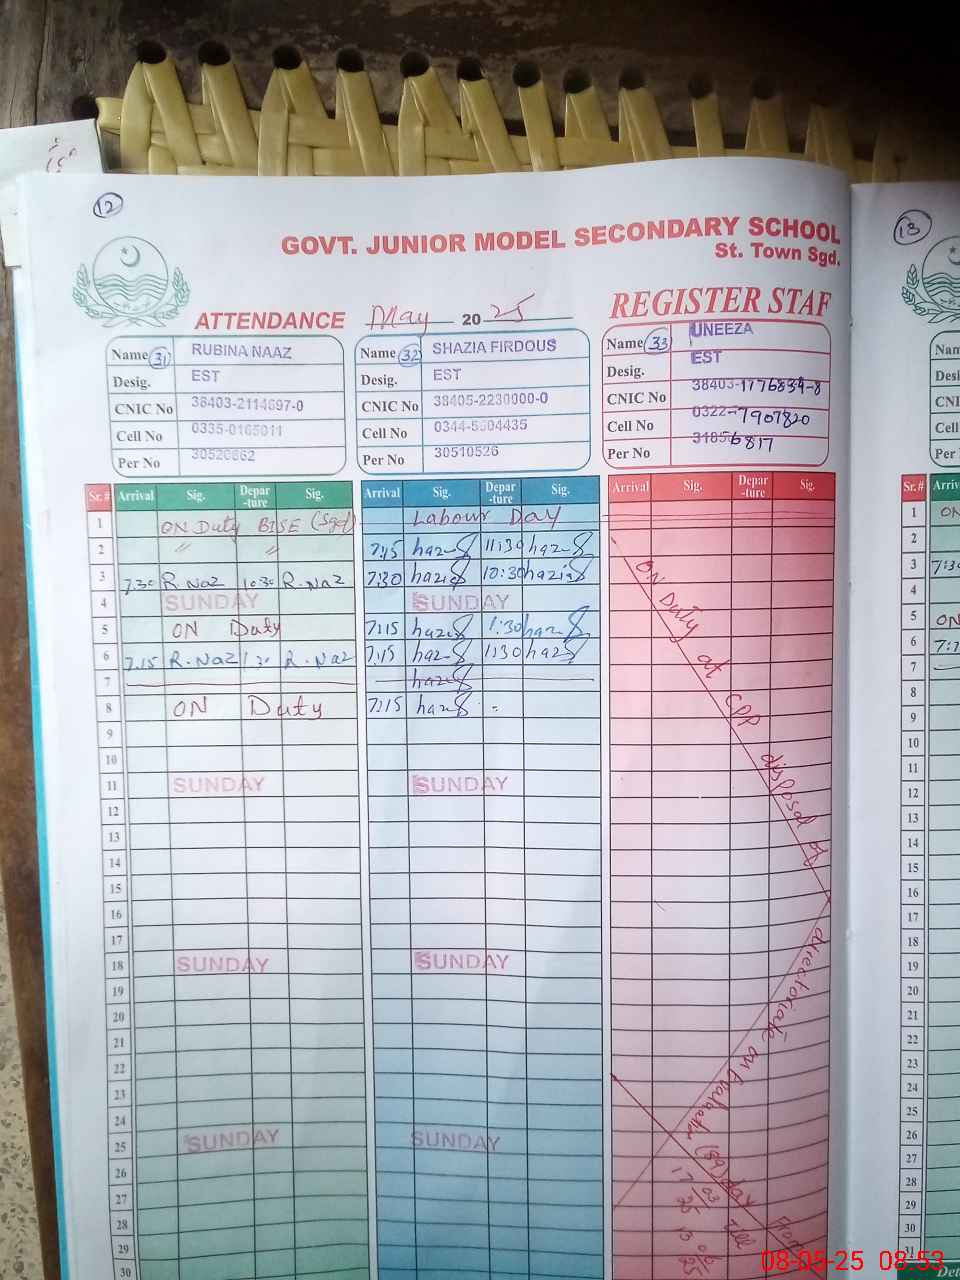 12
13
GOVT. JUNIOR MODEL SECONDARY SCHOOL
St. Town Sgd.
ATTENDANCE May 2025 REGISTER STAF
Name 31 RUBINA NAAZ
Desig. EST
CNIC No 38403-2114697-0
Cell No 0335-0165011
Per No 30520662
Name 32 SHAZIA FIRDOUS
Desig. EST
CNIC No 38405-2230000-0
Cell No 0344-5504435
Per No 30510526
Name 33 UNEEZA
Desig. EST
CNIC No 38403-1776834-8
Cell No 0322-7907820
Per No 31856817
Sr.# Arrival Sig. Depar-ture Sig. Arrival Sig. Depar-ture Sig. Arrival Sig. Depar-ture Sig. Sr.#
1 ON Duty BISE (Sgd) Labour Day 1 ON
2 " " 7:15 11:30 2
3 7.30 R.Naz 10:30 R.Naz 7:30 10:30 3 7:30
4 SUNDAY SUNDAY 4
5 ON Duty 7:15 1:30 5 ON
6 7.15 R.Naz 1.30 R.Naz 7:15 1:30 6
7 7
8 ON Duty 7:15 8
9 9
10 10
11 SUNDAY SUNDAY 11
12 12
13 13
14 14
15 15
16 16
17 17
18 SUNDAY SUNDAY 18
19 19
20 20
21 21
22 22
23 23
24 24
25 SUNDAY SUNDAY 25
26 26
27 27
28 28
29 29
30 30
31
ON Duty at CPP disposal of
directoriate on Evaluation (89) day From
17 03 25 Till 13 06 25
08-05-25 08:53